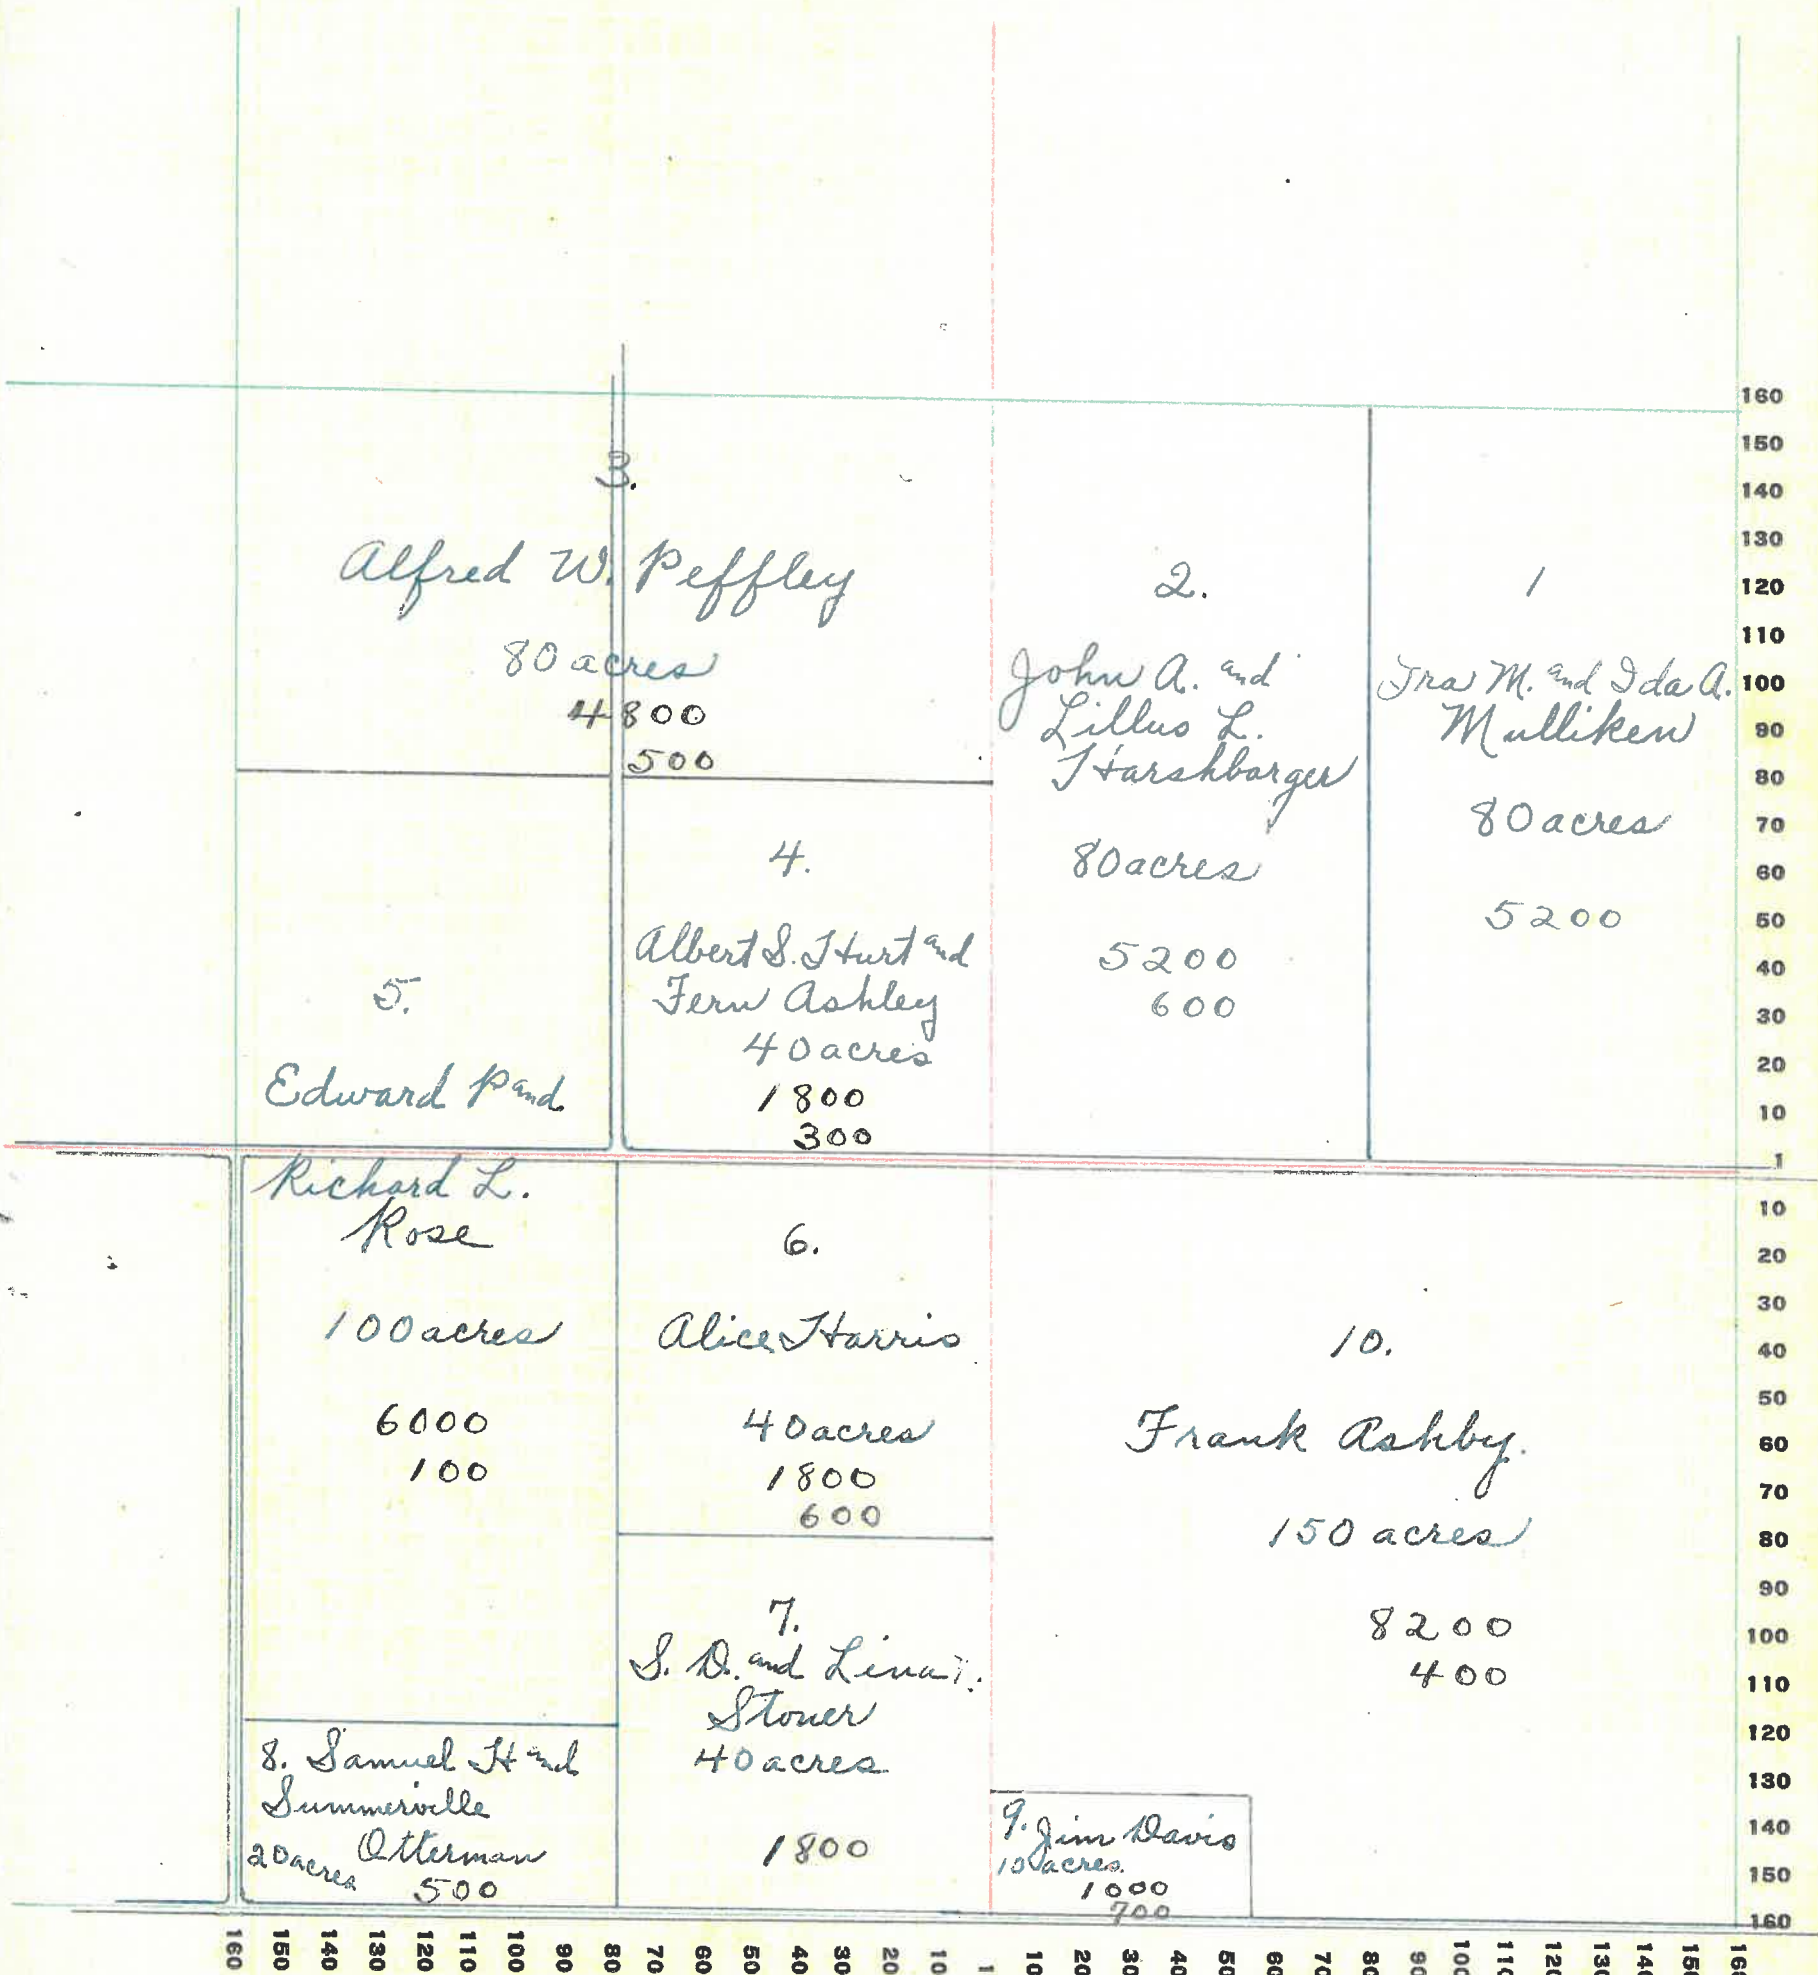 3.
Alfred W. Peffley
80 acres
4800
500
2.
John A. and
Lillus L.
Harshbarger
80 acres
5200
600
1
Ira M. and Ida A.
Mulliken
80 acres
5200
4.
Albert S. Hurt and
Fern Ashley
40 acres
1800
300
5.
Edward P and
Richard L.
Rose
100 acres
6000
100
6.
Alice Harris
40 acres
1800
600
7.
S. D. and Lina
Stoner
40 acres
1800
8. Samuel H and
Summerville
Otterman
20 acres
500
9. Jim Davis
10 acres
1000
700
10.
Frank Ashby.
150 acres
8200
400
160
150
140
130
120
110
100
90
80
70
60
50
40
30
20
10
1
10
20
30
40
50
60
70
80
90
100
110
120
130
140
150
160
160 150 140 130 120 110 100 90 80 70 60 50 40 30 20 10 1 10 20 30 40 50 60 70 80 90 100 110 120